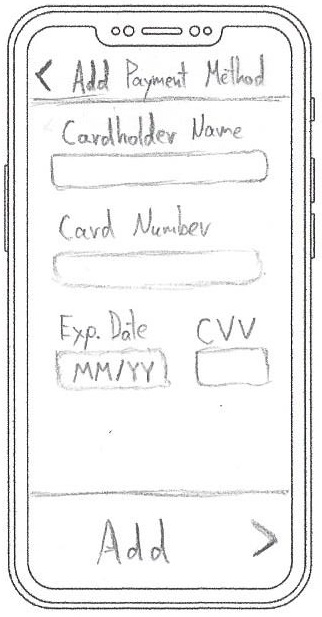 < Add Payment Method
Cardholder Name
Card Number
Exp. Date CVV
MM/YY
Add >